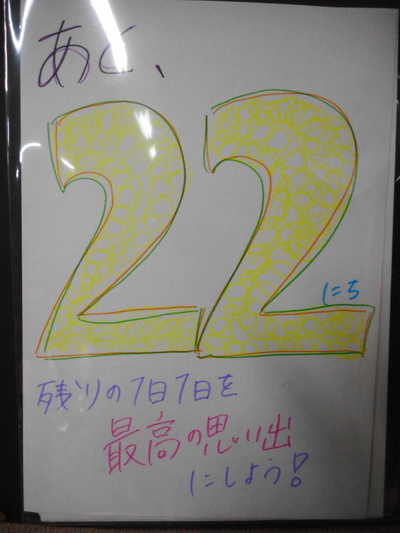 あと、
22
にち
残りの1日1日を
最高の思い出
にしよう!